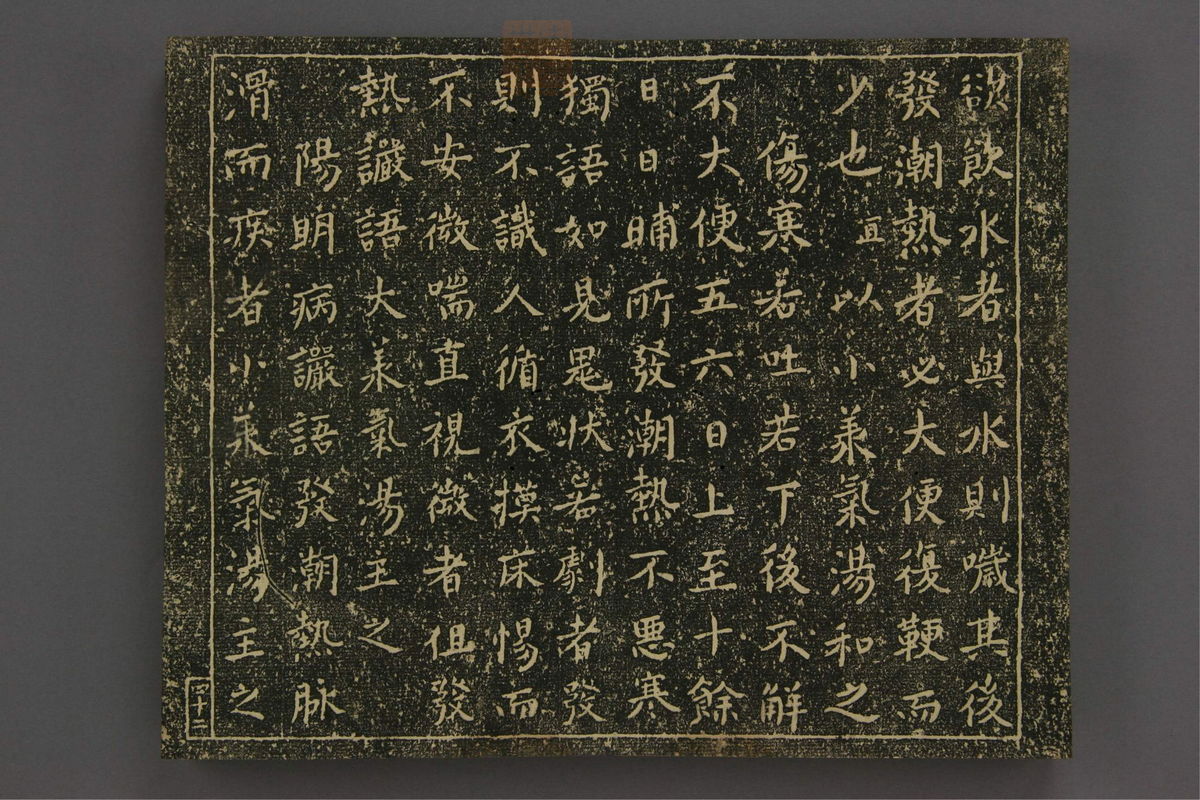 欲飲水者與水則噦其後
發潮熱者必大便復鞕而
少也宜以小承氣湯和之
傷寒若吐若下後不解
不大便五六日上至十餘
日日晡所發潮熱不惡寒
獨語如見鬼狀若劇者發
則不識人循衣摸床惕而
不安微喘直視微者但發
熱讝語大承氣湯主之
陽明病讝語發潮熱脈
滑而疾者小承氣湯主之
四十二